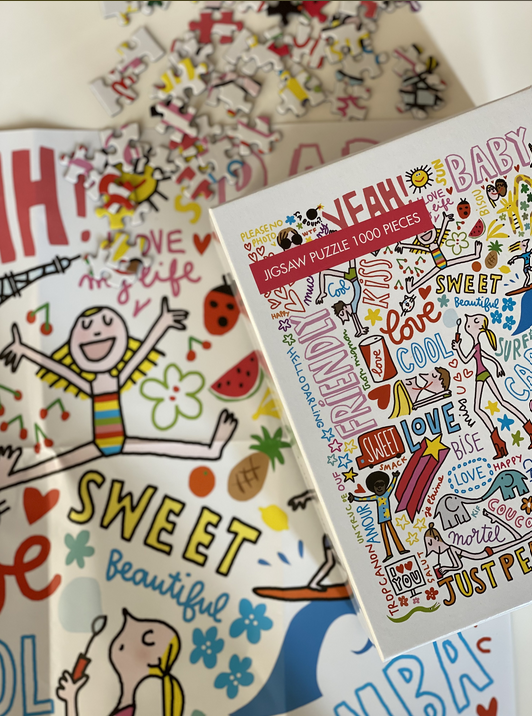 YEAH!
SUN
BABY
PLEASE NO
PHOTO
WTF
JIGSAW PUZZLE 1000 PIECES
LOVE
my
life
KISS
Cool
HAPPY
SWEET
Beautiful
love
HELLO DARLING
FRIENDLY
love
COOL
SURF
SWEET
SMACK
LOVE
miss u
BISE
LOVE
HAPPY
je t'aime
AMOUR
UN TRUC DE OUF
TROP CANON
COUCOU
mortel
I
YOU
SALUT
JUST PE
H!
LOVE
my life
SWEET
Beautiful
OL
MBA